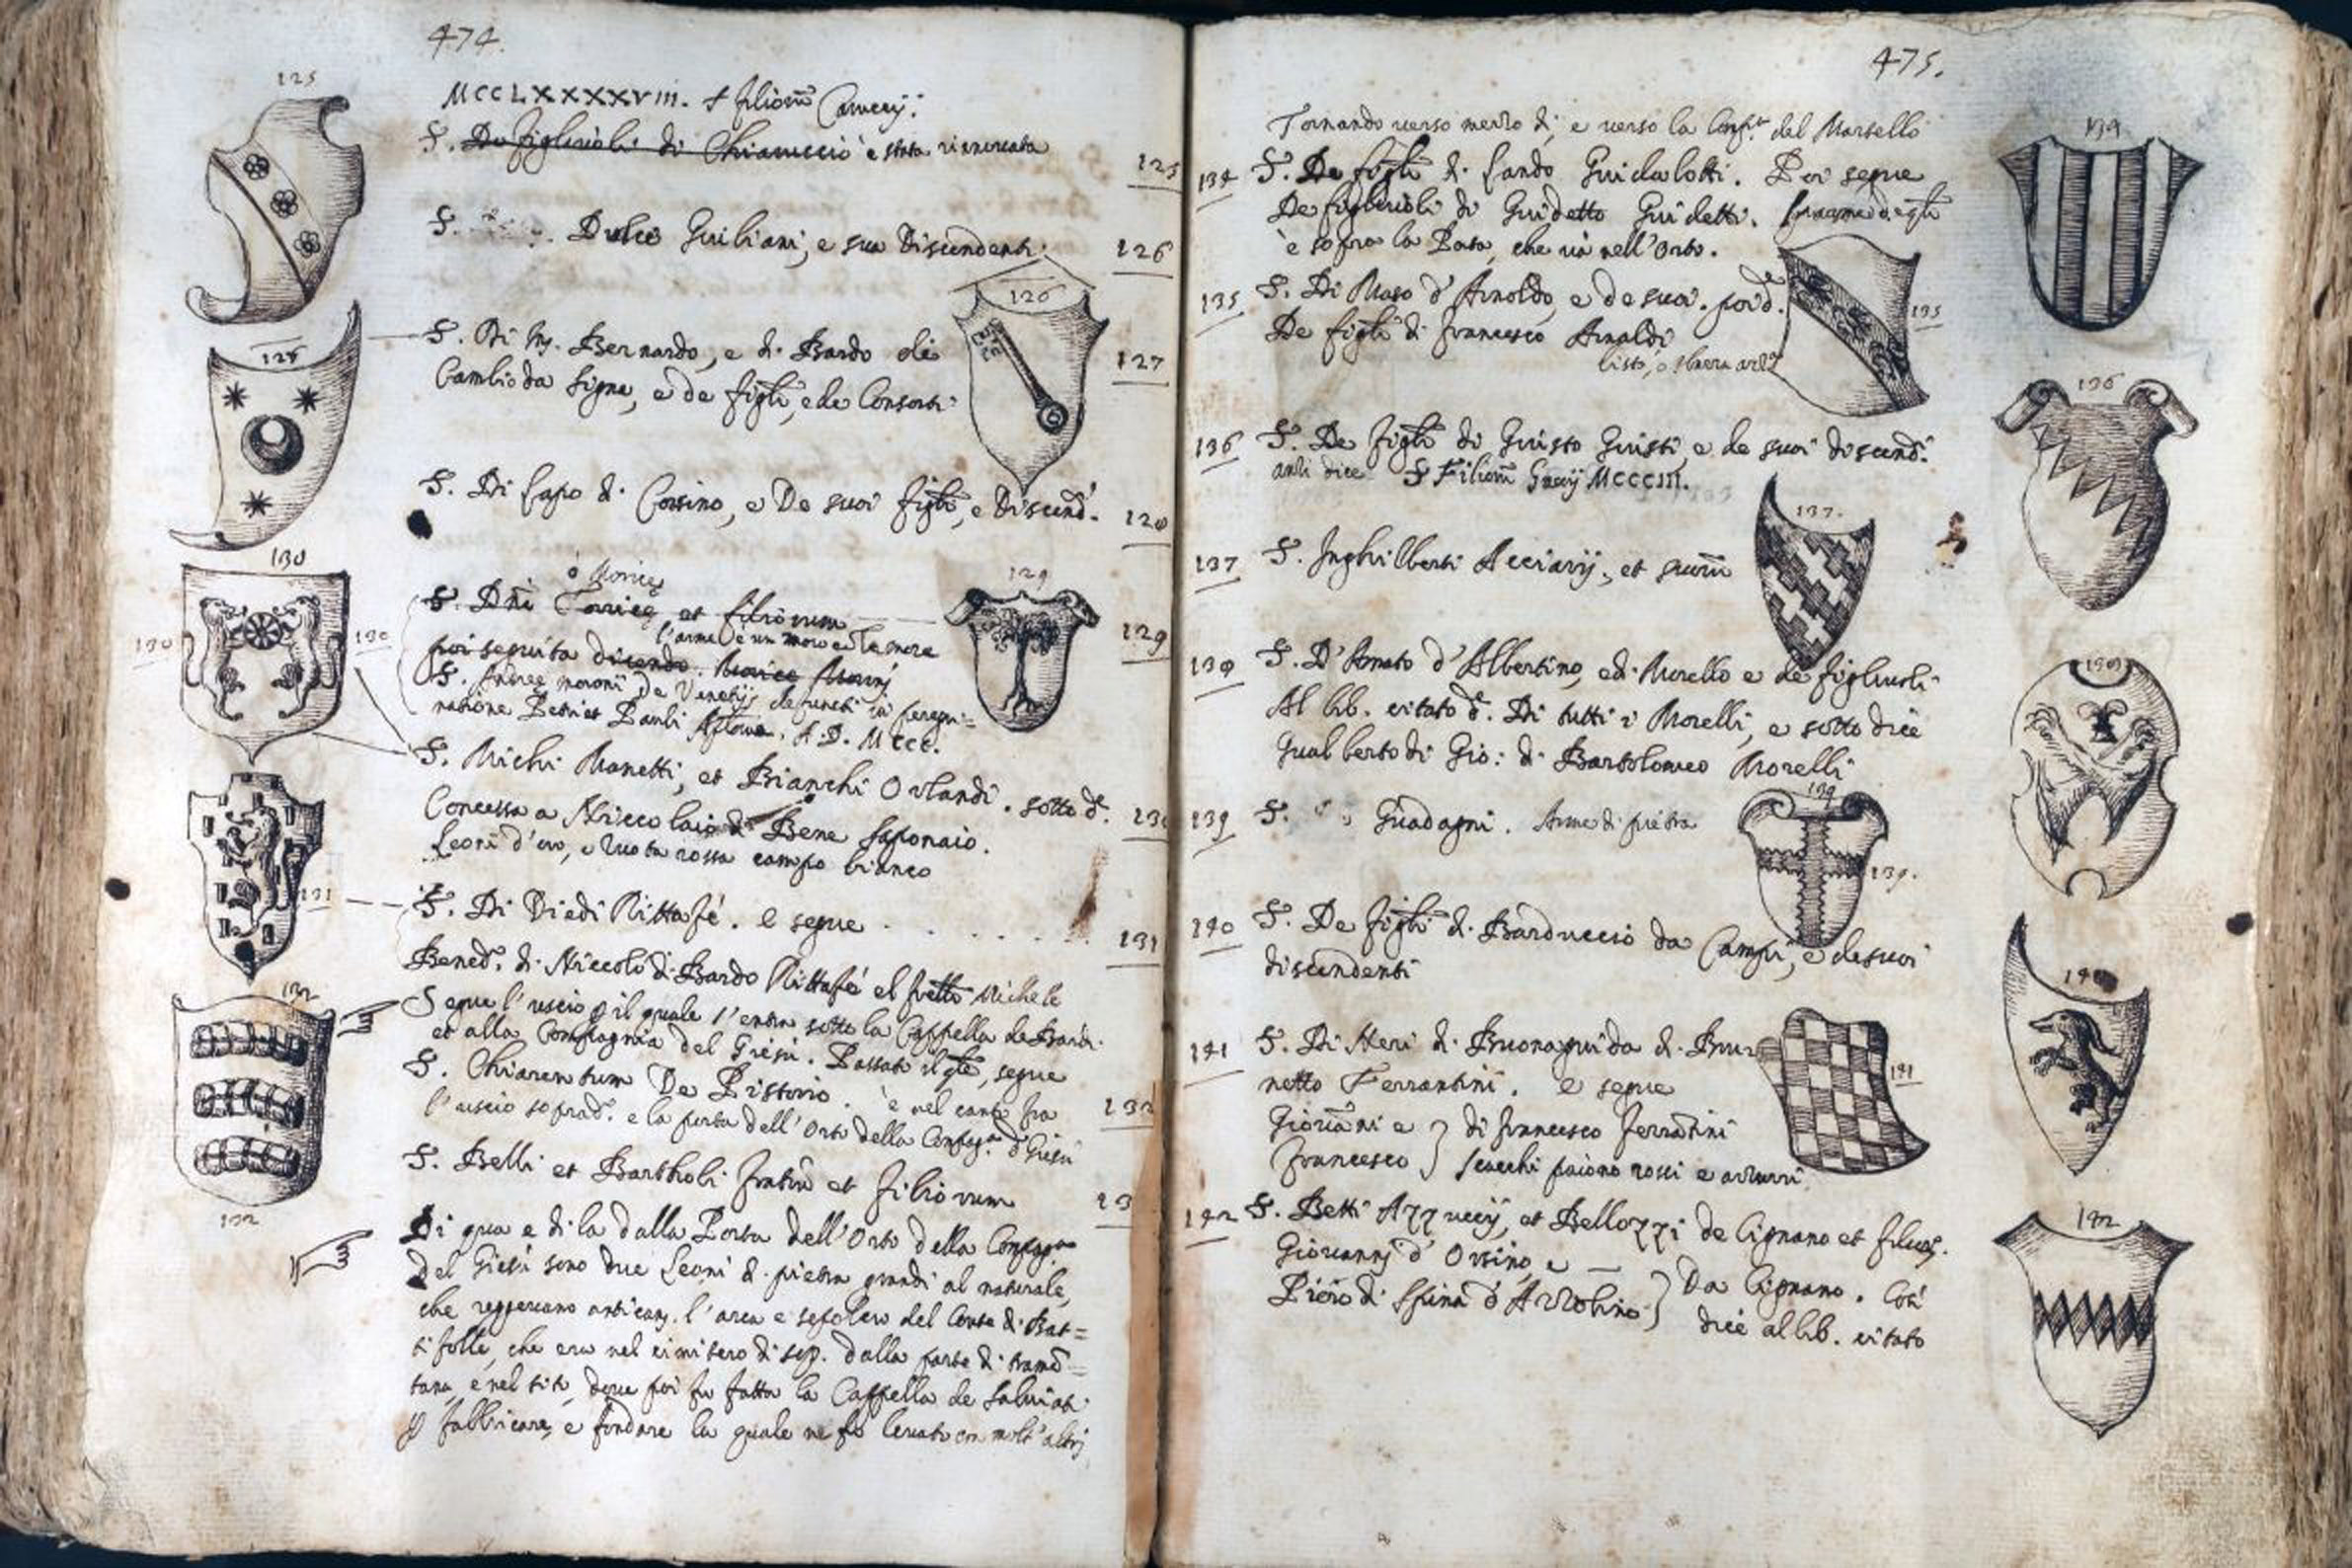 474.
125
MCCLXXXXVIII. S filiorũ Carucij:
S. De figliuoli di Chiaruccio è stata rinnovata
125
S. Dulci Guiliani, e sua Discendenti.
126
126
S. Di Bernardo, e di Bardo di
127
Cambio da Signa, e de figli, e de Consorti
128
S. Di Lapo di Corsino, e De suoi figli, e Discend.
128
130
ò Morice
S. Dñi et filiorum
129
129
l'arme è un moro
130
130
poi seguita dicendo.
S. Andree moroni De Venetijs defuncti in peregri=
natione Petri et Pauli A.D. MCCC.
S. Michi Manetti, et Bianchi Orlandi. sotto d.
Concessa a Niccolaio di Bene Saponaio.
Leoni d'oro, e Ruota rossa campo bianco
131
S. Di Diedi Rittafé. e segue
131
Bened. di Niccolò di Bardo Rittafé el fratello Michele
132
Segue l'uscio p il quale s'entra sotto la Cappella de Bardi.
et alla Compagnia del Giesù. Passato il qle, segue
S. Chiarentum De Pistorio. è nel canto fra
132
l'uscio soprad. e la porta dell'Orto della Compag. d Giesù
S. Belli et Bartholi fratrũ et filiorum
13
132
Di qua e di la dalla Porta dell'Orto della Compag.
del Giesù sono due Leoni di pietra grandi al naturale,
che reggevano antic. l'arca e sepolcro del Conte di Bat=
tifolle, che era nel cimitero di sop. dalla parte di tramõ=
tana, e nel sito, dove poi fu fatta la Cappella de Salviati
p fabbricare, e fondare la quale ne fu levato con molt'altri
475.
Tornando verso mezzo dì, e verso la del Martello
134
134
S. De figli di Lando Guidalotti. Poi segue
De figliuoli di Guidetto Guidetti.
è sopra la Porta, che và nell'Orto.
135
S. Di Maso d'Arnoldo, e de suoi. poi d.
135
De figli di francesco Arnoldi
136
136
S. De figli di Giusto Giusti, e de suoi discend.
anzi dice S Filiorũ MCCCIII.
137.
137
S. Inghilberti Acciarij, et suorũ
138
138
S. D'Amato d'Albertino, e di Morello e de figliuoli
Al lib. citato d. Di tutti i Morelli, e sotto dice
Gualberto di Gio: di Bartolomeo Morelli
139
139
S. Guadagni. Arme di pietra
139.
140
S. De figli di Barduccio da Campi, e de suoi
discendenti
140
141
S. Di Neri di Buonaguida di Bru
netto Ferrantini. e segue
141
Giovãni e } di francesco ferrãtini
francesco } scacchi paiono rossi e azzurri
142
S. Betti Azzuccij, et Bellozzi de Cignano et filior.
142
Giovanni d'Orsino, e
Piero di Spina d'Azzolino } Da Cignano. Così
dice al lib. citato